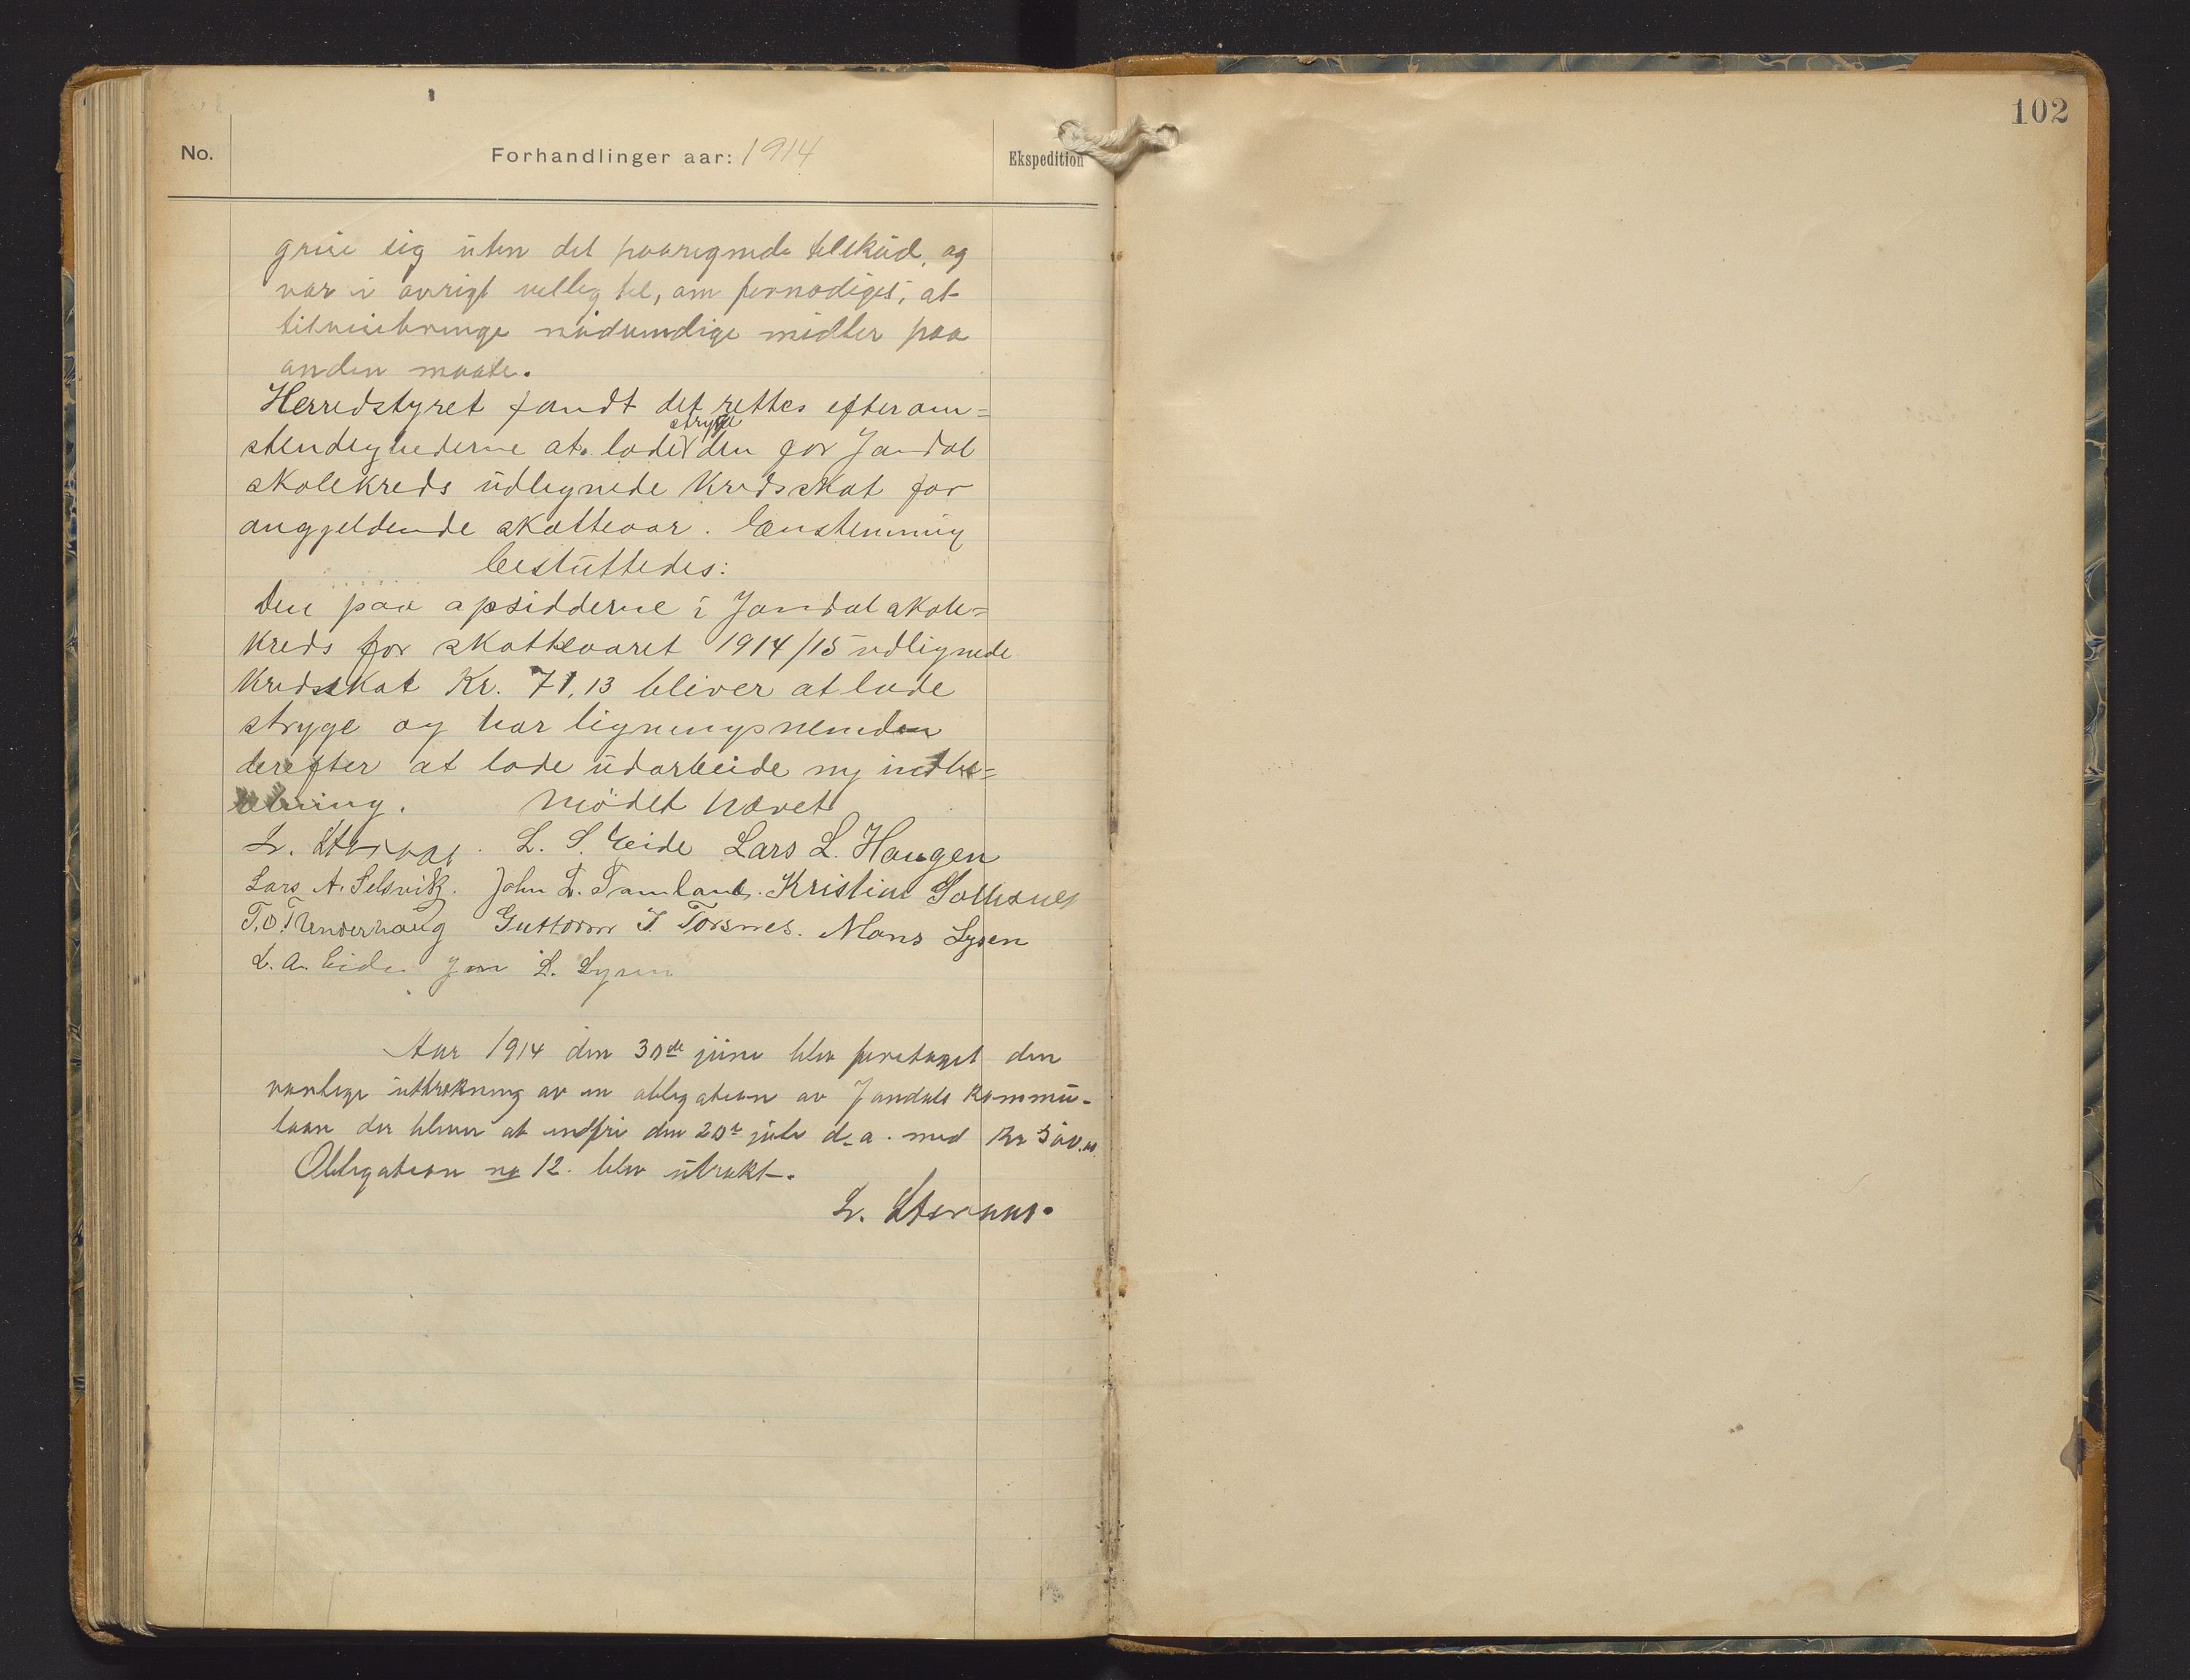 102
No.
Forhandlinger aar: 1914
Ekspedition
greie sig uten det paaregnede tilskud, og
var i øvrigt villig til, om fornødiges, at
tilveiebringe nødvendige midler paa
anden maate.
Herredstyret fandt det rettes efter om=
stendighederne at lade stryge den for Jondal
skolekreds udlignede kredsskat for
anggjeldende skatteaar. Eenstemmig
besluttedes:
Den paa opsidderne i Jondal skole=
kreds for skatteaaret 1914/15 udlignede
kredsskat Kr. 71,13 bliver at lade
stryge og har ligningsnemden
derefter at lade udarbeide ny indbe=
talning. Mødet hævet
L. S. Eide Lars L. Haugen
Lars A. Selsvik. John L. Samland. Kristian Solhaug
T. O. Underhaug Guttorm J. Torsnes. Mons Lysen
L. A. Eide Jon L. Lysen
Aar 1914 den 30de juni blev foretaget den
vanlige uttrækning av en obligation av Jondals kommu-
laan der bliver at indfri den 20de juli d. a. med Kr 500.00.
Obligation no 12 blev utrukt.